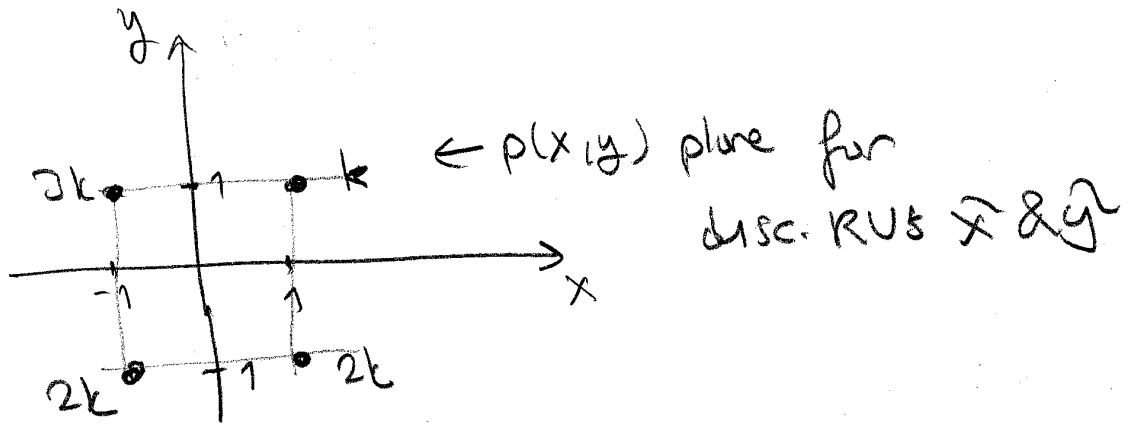 y
3k 1 k ← p(x,y) plane for
disc. RVs x̃ & ỹ
-1 1 x
2k -1 2k